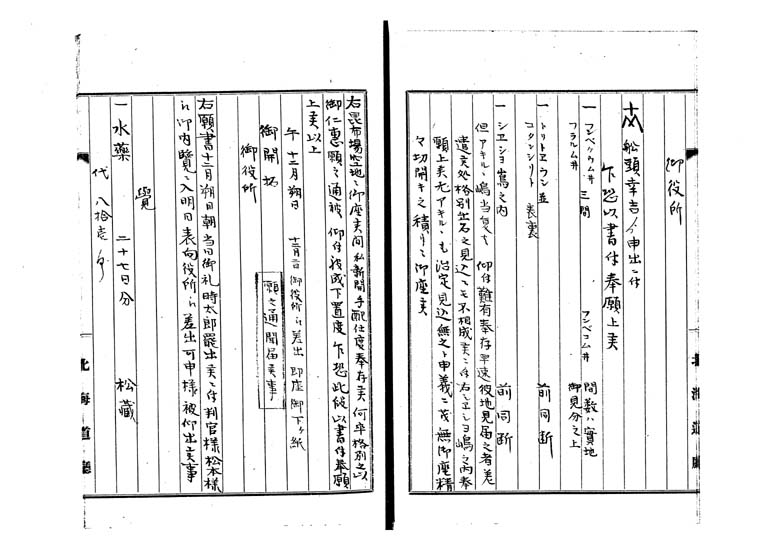 御役所
船頭幸吉ゟ申出ニ付
乍恐以書付奉願上候
一 フンベケウム井 三間 フンベコム井 間数ハ實地
フラルム井 御見分之上
一 トリトエウラン並 前同断
コタンシリト 表裏
一 シエショ嶌之内 前同断
但アキルヽ嶋当夏ゟ 仰付難有奉存早速彼地見届之者差
遣候処格別出石之見込ニも不相成候ニ付右シエショ嶋之内奉
願上候尤アキルヽも治定見込無之と申義ニ茂無御座精
々切開キ之積リニ御座候
右昆布場空地ニ御座候間私新開手配仕度奉存候何卒格別之以
御仁恵願之通被 仰付被成下置度乍恐此段以書付奉願
上候以上
午 十二月朔日 十二月二日御役所ニ差出即座御下ケ紙
御開拓 願之通聞届候事
御役所
右願書十二月朔日朝当日御礼時太郎罷出候ニ付判官様松本様
ニ御内覧ニ入明日表向役所ニ差出可申様被仰出候事
覚
一 水薬 二十七日分 松蔵
代 八拾壱匁
北海道廳